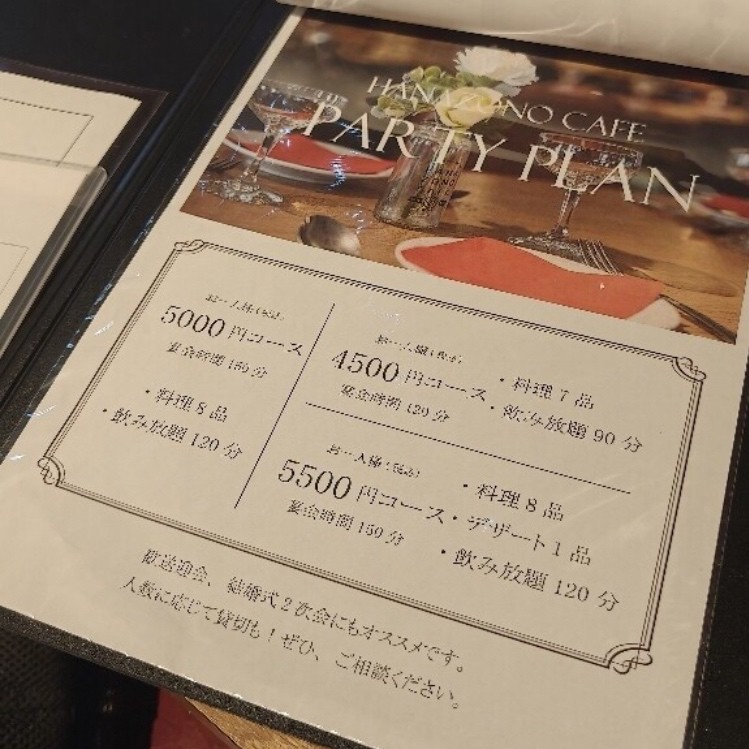 HANAZONO CAFE
PARTY PLAN
お一人様(税込)
5000円コース
宴会時間150分
・料理8品
・飲み放題120分
お一人様(税込)
4500円コース
宴会時間120分
・料理7品
・飲み放題90分
お一人様(税込)
5500円コース
宴会時間150分
・料理8品
・デザート1品
・飲み放題120分
歓送迎会、結婚式2次会にもオススメです。
人数に応じて貸切も!ぜひ、ご相談ください。